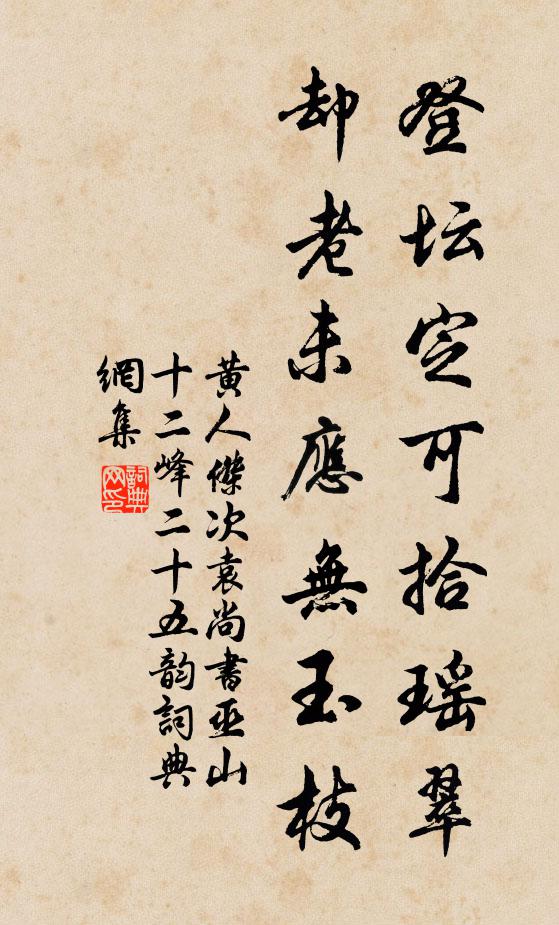 登坛定可拾瑶翠
却老未應無玉枝
黄人傑次袁尚書巫山
十二峰二十五韵詞典
網集
詞典网印